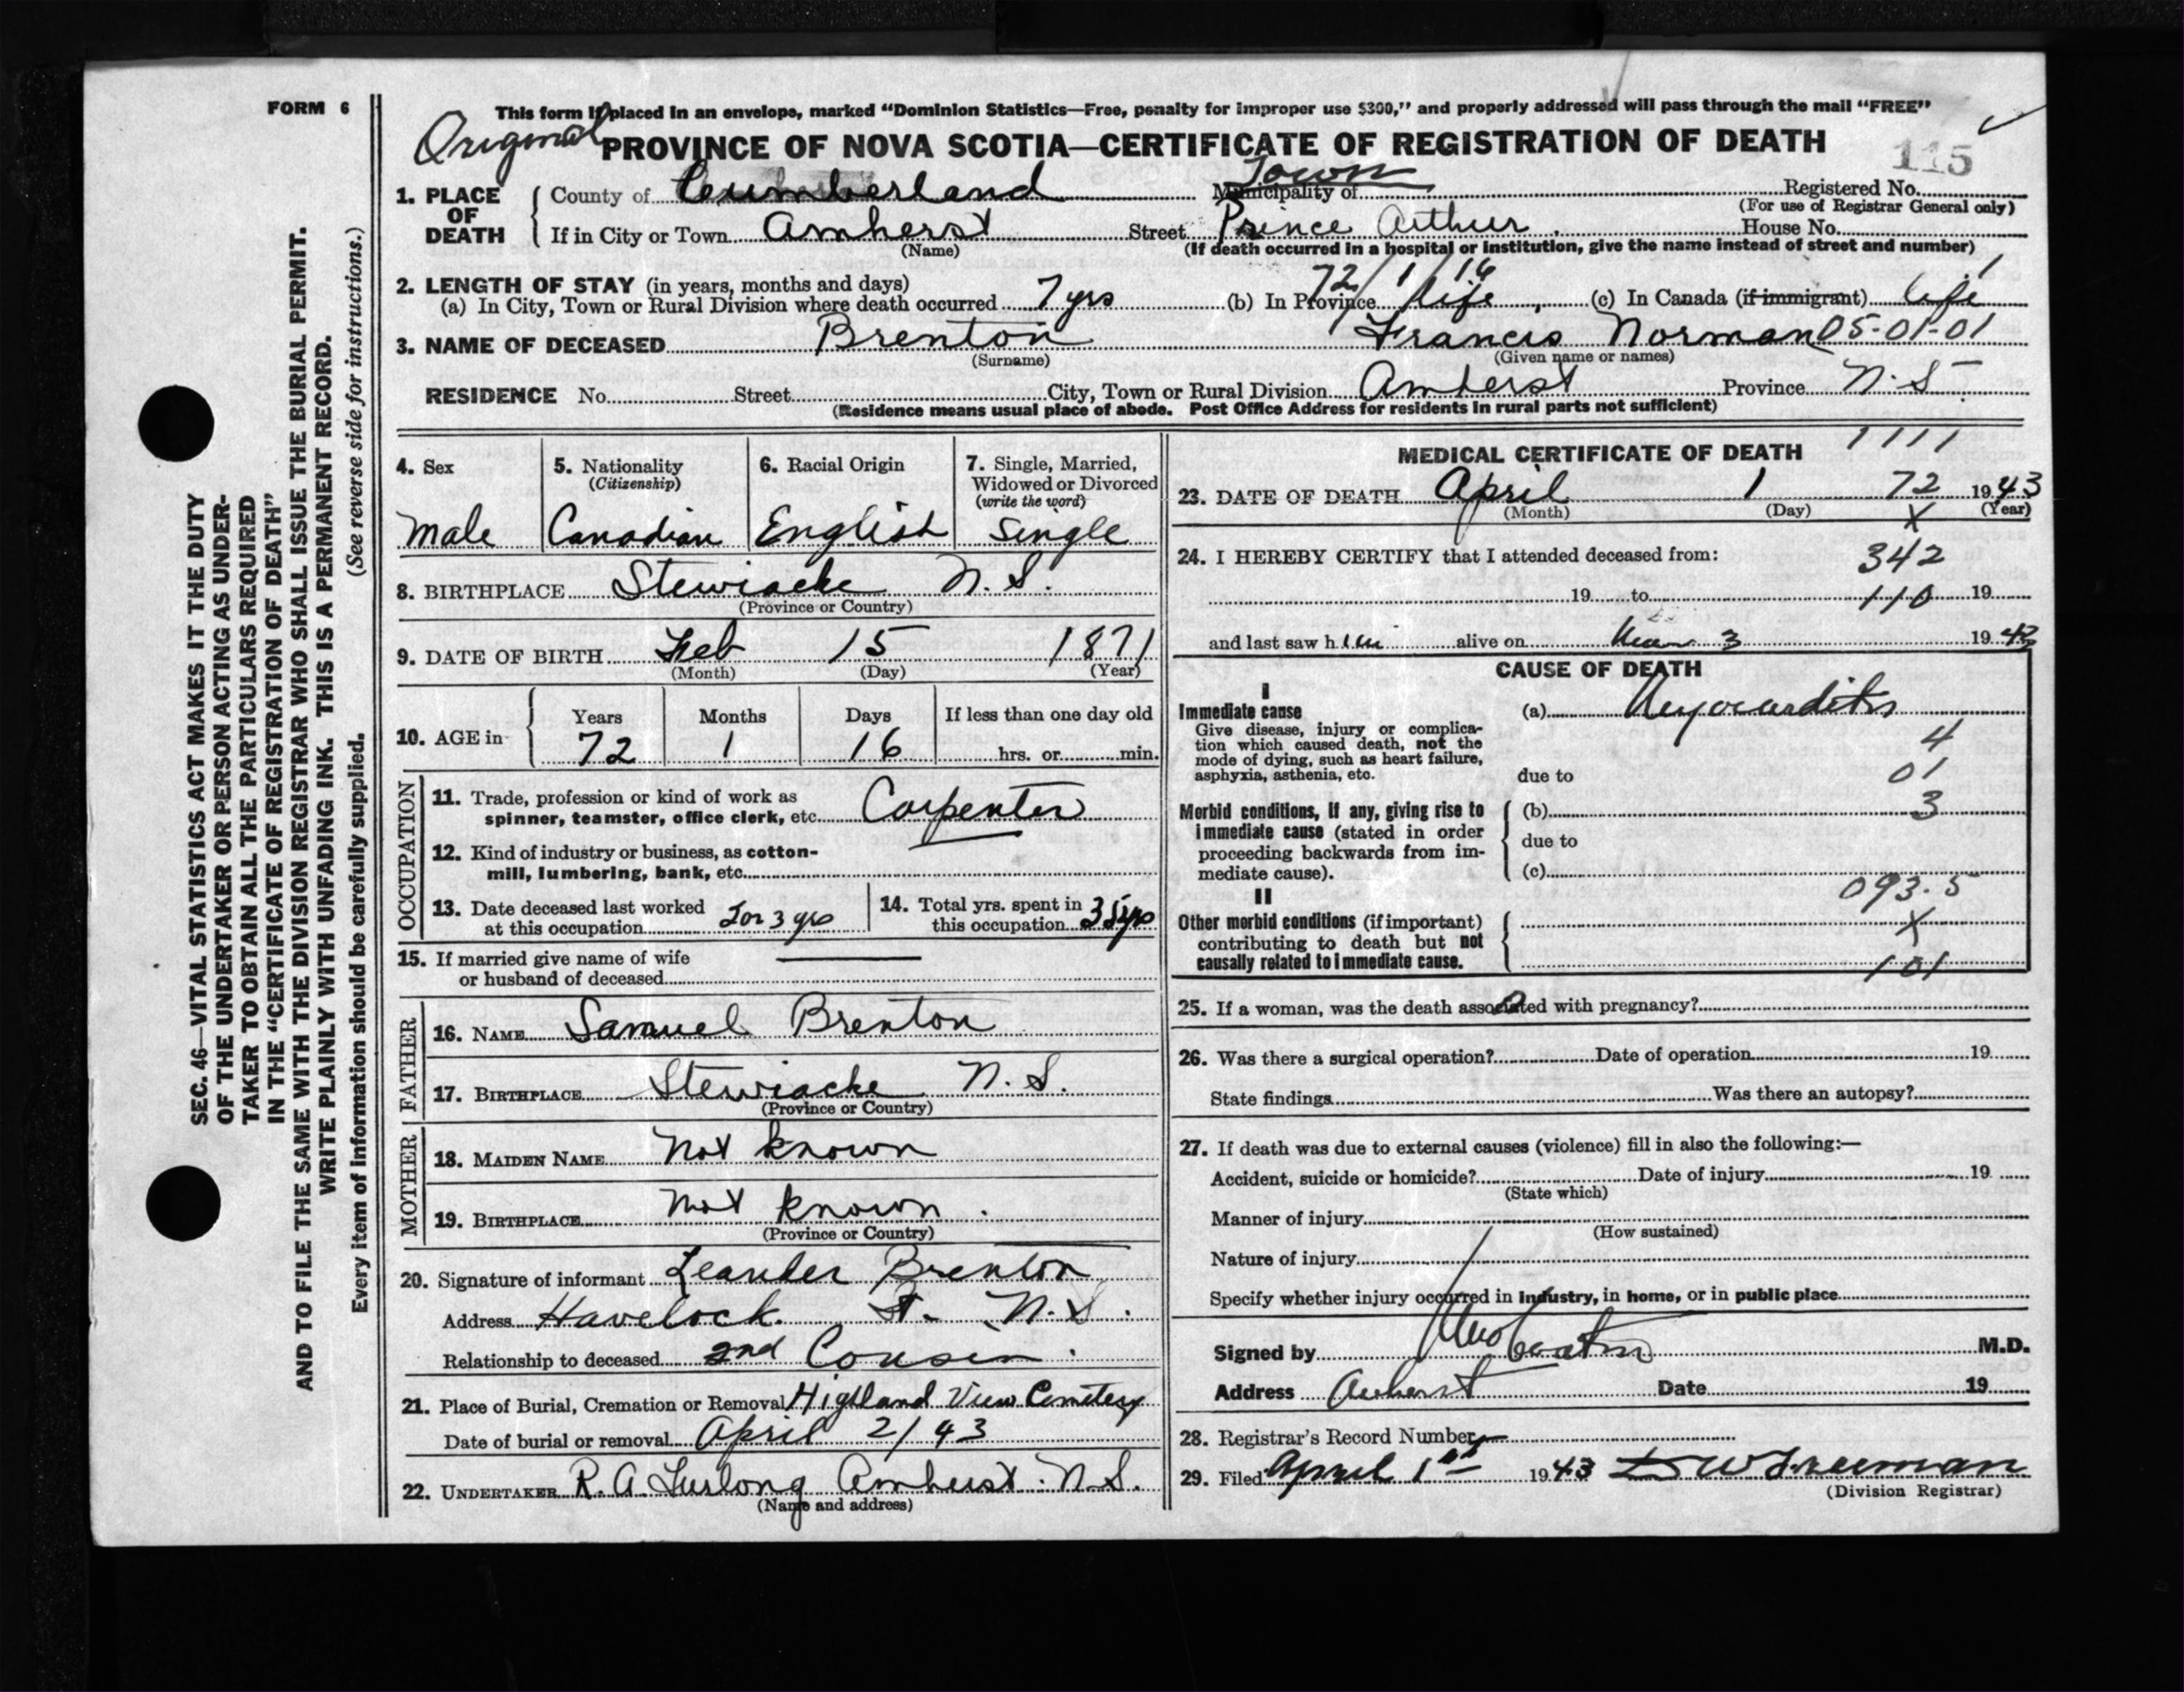 FORM 6
This form if placed in an envelope, marked “Dominion Statistics—Free, penalty for improper use $300,” and properly addressed will pass through the mail “FREE”
Original PROVINCE OF NOVA SCOTIA—CERTIFICATE OF REGISTRATION OF DEATH
115
1. PLACE OF DEATH
County of Cumberland Town Municipality of Registered No.
(For use of Registrar General only)
If in City or Town Amherst Street Prince Arthur House No.
(Name) (If death occurred in a hospital or institution, give the name instead of street and number)
2. LENGTH OF STAY (in years, months and days) 72/1/16
(a) In City, Town or Rural Division where death occurred 7 yrs (b) In Province life (c) In Canada (if immigrant) life
3. NAME OF DECEASED Brenton Francis Norman 05-01-01
(Surname) (Given name or names)
RESIDENCE No. Street City, Town or Rural Division Amherst Province N.S.
(Residence means usual place of abode. Post Office Address for residents in rural parts not sufficient)
4. Sex
Male
5. Nationality
(Citizenship)
Canadian
6. Racial Origin
English
7. Single, Married,
Widowed or Divorced
(write the word)
Single
8. BIRTHPLACE Stewiacke N.S.
(Province or Country)
9. DATE OF BIRTH Feb 15 1871
(Month) (Day) (Year)
10. AGE in
Years Months Days If less than one day old
72 1 16 hrs. or min.
OCCUPATION
11. Trade, profession or kind of work as
spinner, teamster, office clerk, etc. Carpenter
12. Kind of industry or business, as cotton-
mill, lumbering, bank, etc.
13. Date deceased last worked
at this occupation For 3 yrs
14. Total yrs. spent in
this occupation 35 yrs
15. If married give name of wife
or husband of deceased
FATHER
16. NAME Samuel Brenton
17. BIRTHPLACE Stewiacke N.S.
(Province or Country)
MOTHER
18. MAIDEN NAME Not known
19. BIRTHPLACE Not known.
(Province or Country)
20. Signature of informant Leander Brenton
Address Havelock St. N.S.
Relationship to deceased 2nd Cousin.
21. Place of Burial, Cremation or Removal Highland View Cemetery
Date of burial or removal April 2/43
22. UNDERTAKER R. A. Furlong Amherst N.S.
(Name and address)
MEDICAL CERTIFICATE OF DEATH 1111
23. DATE OF DEATH April 1 72 1943
(Month) (Day) X (Year)
24. I HEREBY CERTIFY that I attended deceased from: 342
19 to 110 19
and last saw him alive on 3 1943
CAUSE OF DEATH
I
Immediate cause (a) Myocarditis
Give disease, injury or complica-
tion which caused death, not the 4
mode of dying, such as heart failure,
asphyxia, asthenia, etc. due to 01
Morbid conditions, if any, giving rise to (b) 3
immediate cause (stated in order
proceeding backwards from im- due to
mediate cause). (c)
II 093.5
Other morbid conditions (if important) X
contributing to death but not
causally related to immediate cause. 101
25. If a woman, was the death associated with pregnancy?
26. Was there a surgical operation? Date of operation 19
State findings Was there an autopsy?
27. If death was due to external causes (violence) fill in also the following:—
Accident, suicide or homicide? Date of injury 19
(State which)
Manner of injury
(How sustained)
Nature of injury
Specify whether injury occurred in industry, in home, or in public place
Signed by M.D.
Address Amherst Date 19
28. Registrar's Record Number
29. Filed April 1st 1943 Freeman
(Division Registrar)
SEC. 46—VITAL STATISTICS ACT MAKES IT THE DUTY
OF THE UNDERTAKER OR PERSON ACTING AS UNDER-
TAKER TO OBTAIN ALL THE PARTICULARS REQUIRED
IN THE “CERTIFICATE OF REGISTRATION OF DEATH”
AND TO FILE THE SAME WITH THE DIVISION REGISTRAR WHO SHALL ISSUE THE BURIAL PERMIT.
WRITE PLAINLY WITH UNFADING INK. THIS IS A PERMANENT RECORD.
Every item of information should be carefully supplied. (See reverse side for instructions.)